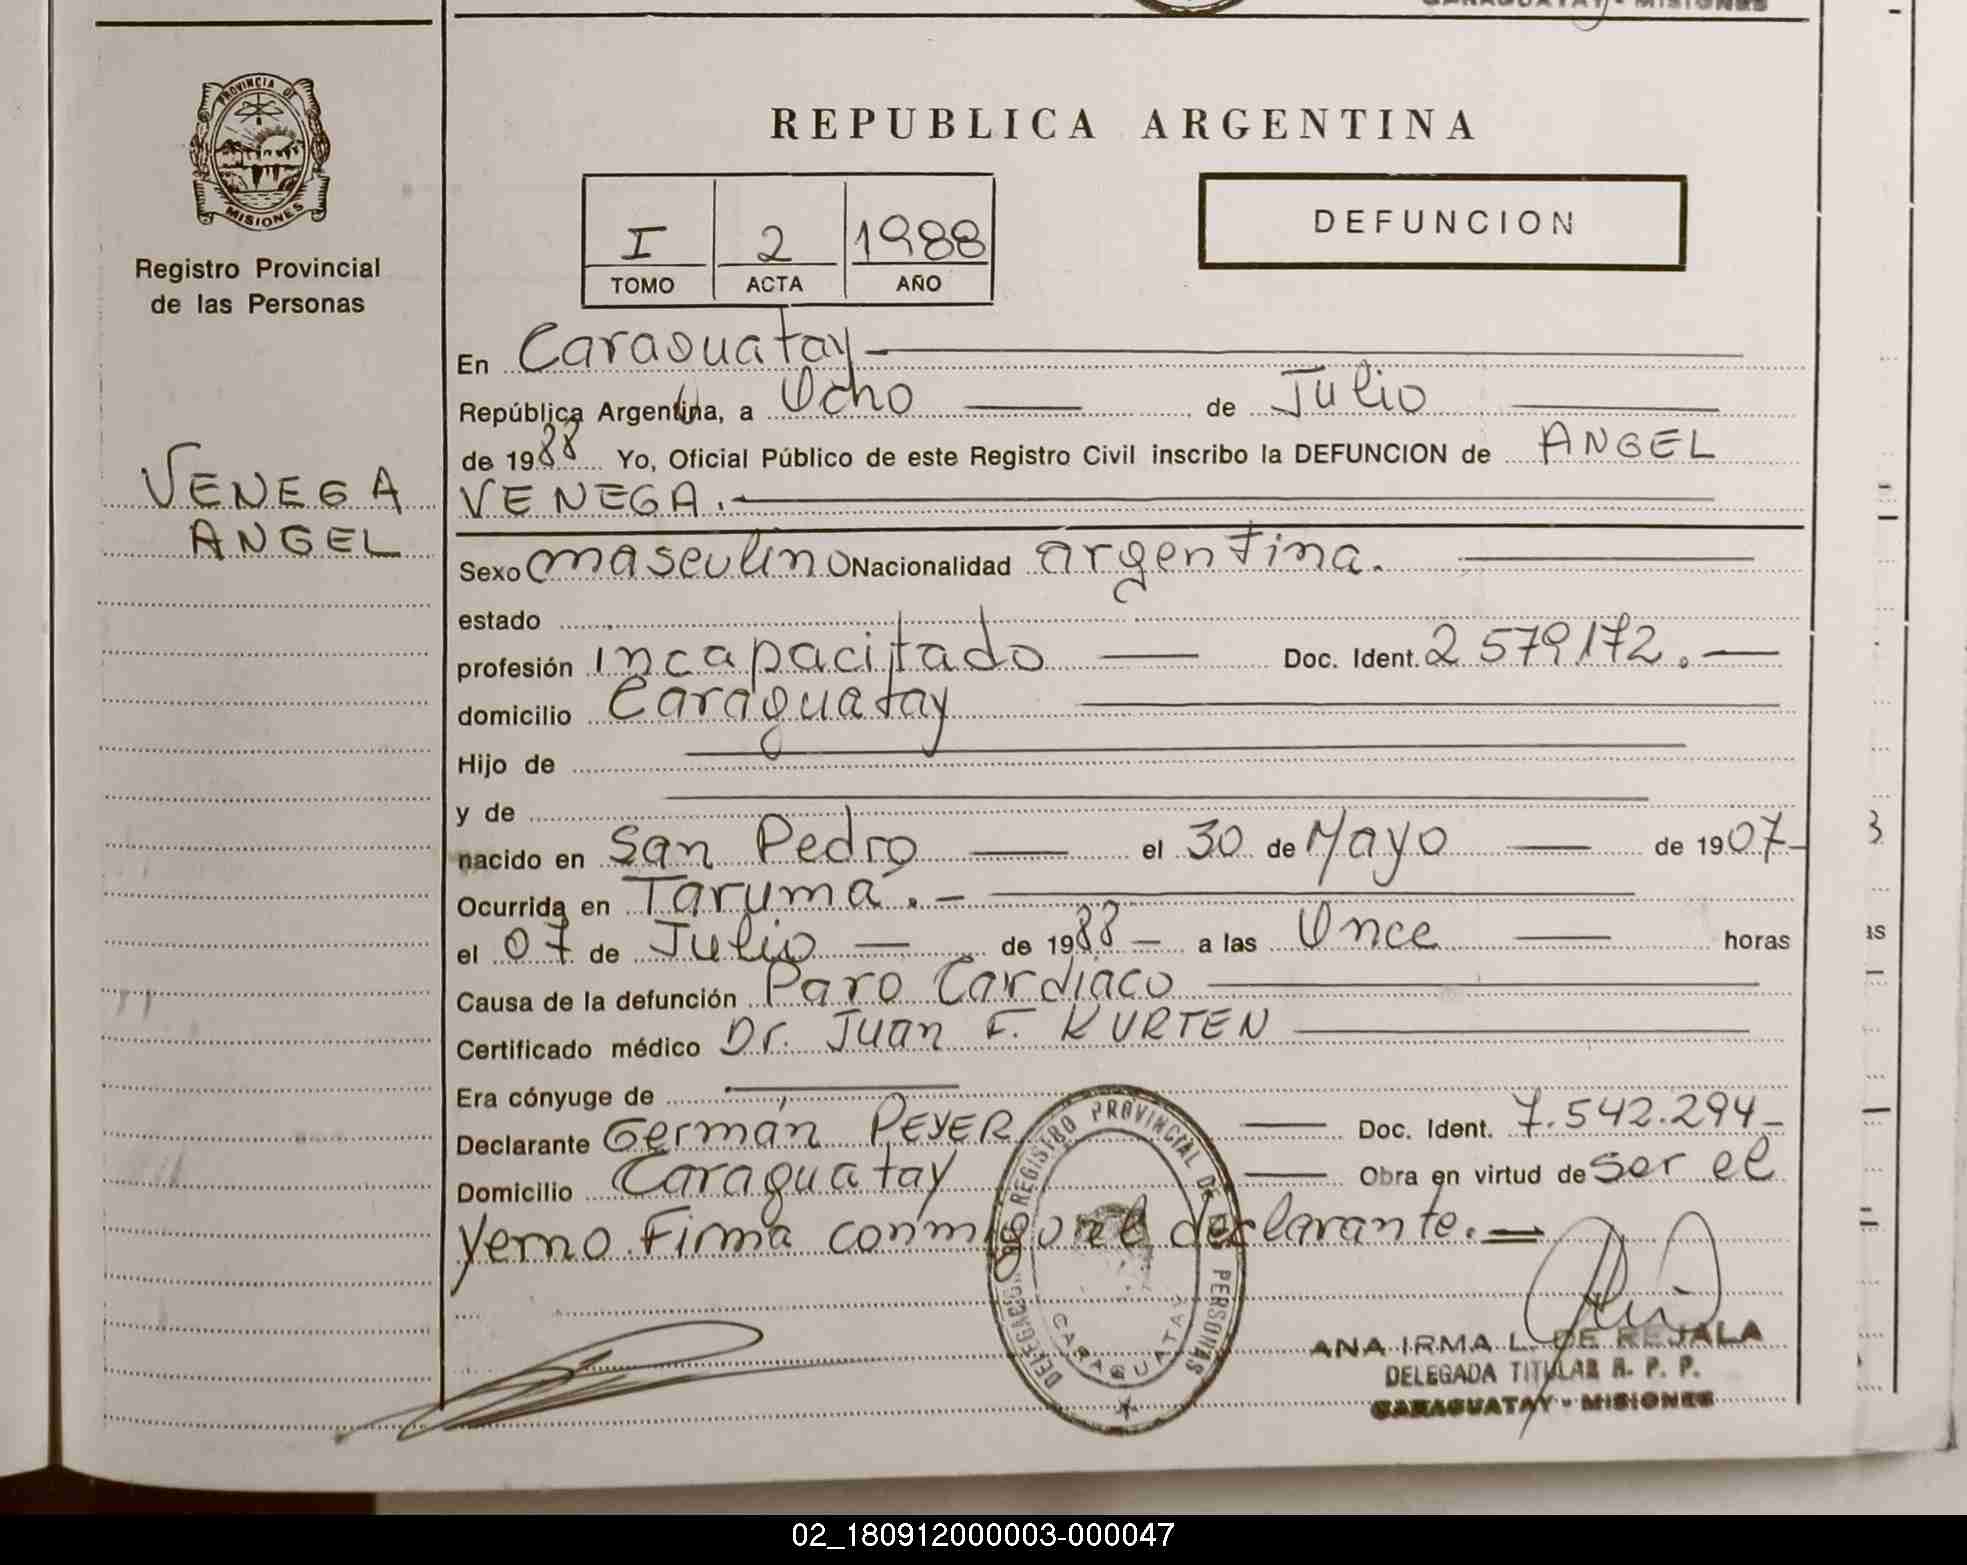 CARAGUATAY - MISIONES
PROVINCIA DE
MISIONES
Registro Provincial
de las Personas
VENEGA
ANGEL
REPUBLICA ARGENTINA
I 2 1988
TOMO ACTA AÑO
DEFUNCION
En Caraguatay
República Argentina, a Ocho de Julio
de 1988 Yo, Oficial Público de este Registro Civil inscribo la DEFUNCION de ANGEL
VENEGA.
Sexo masculino Nacionalidad argentina.
estado
profesión incapacitado Doc. Ident. 2 579172.
domicilio Caraguatay
Hijo de
y de
nacido en San Pedro el 30 de Mayo de 1907
Ocurrida en Taruma.
el 07 de Julio de 1988 a las Once horas
Causa de la defunción Paro Cardiaco
Certificado médico Dr. Juan F. KURTEN
Era cónyuge de
Declarante Germán PEYER Doc. Ident. 7.542.294
Domicilio Caraguatay Obra en virtud de ser el
yerno. Firma conmigo el declarante.
REGISTRO PROVINCIAL DE PERSONAS
CARAGUATAY
ANA IRMA L. DE REJALA
DELEGADA TITULAR R. P. P.
CARAGUATAY - MISIONES
02_180912000003-000047